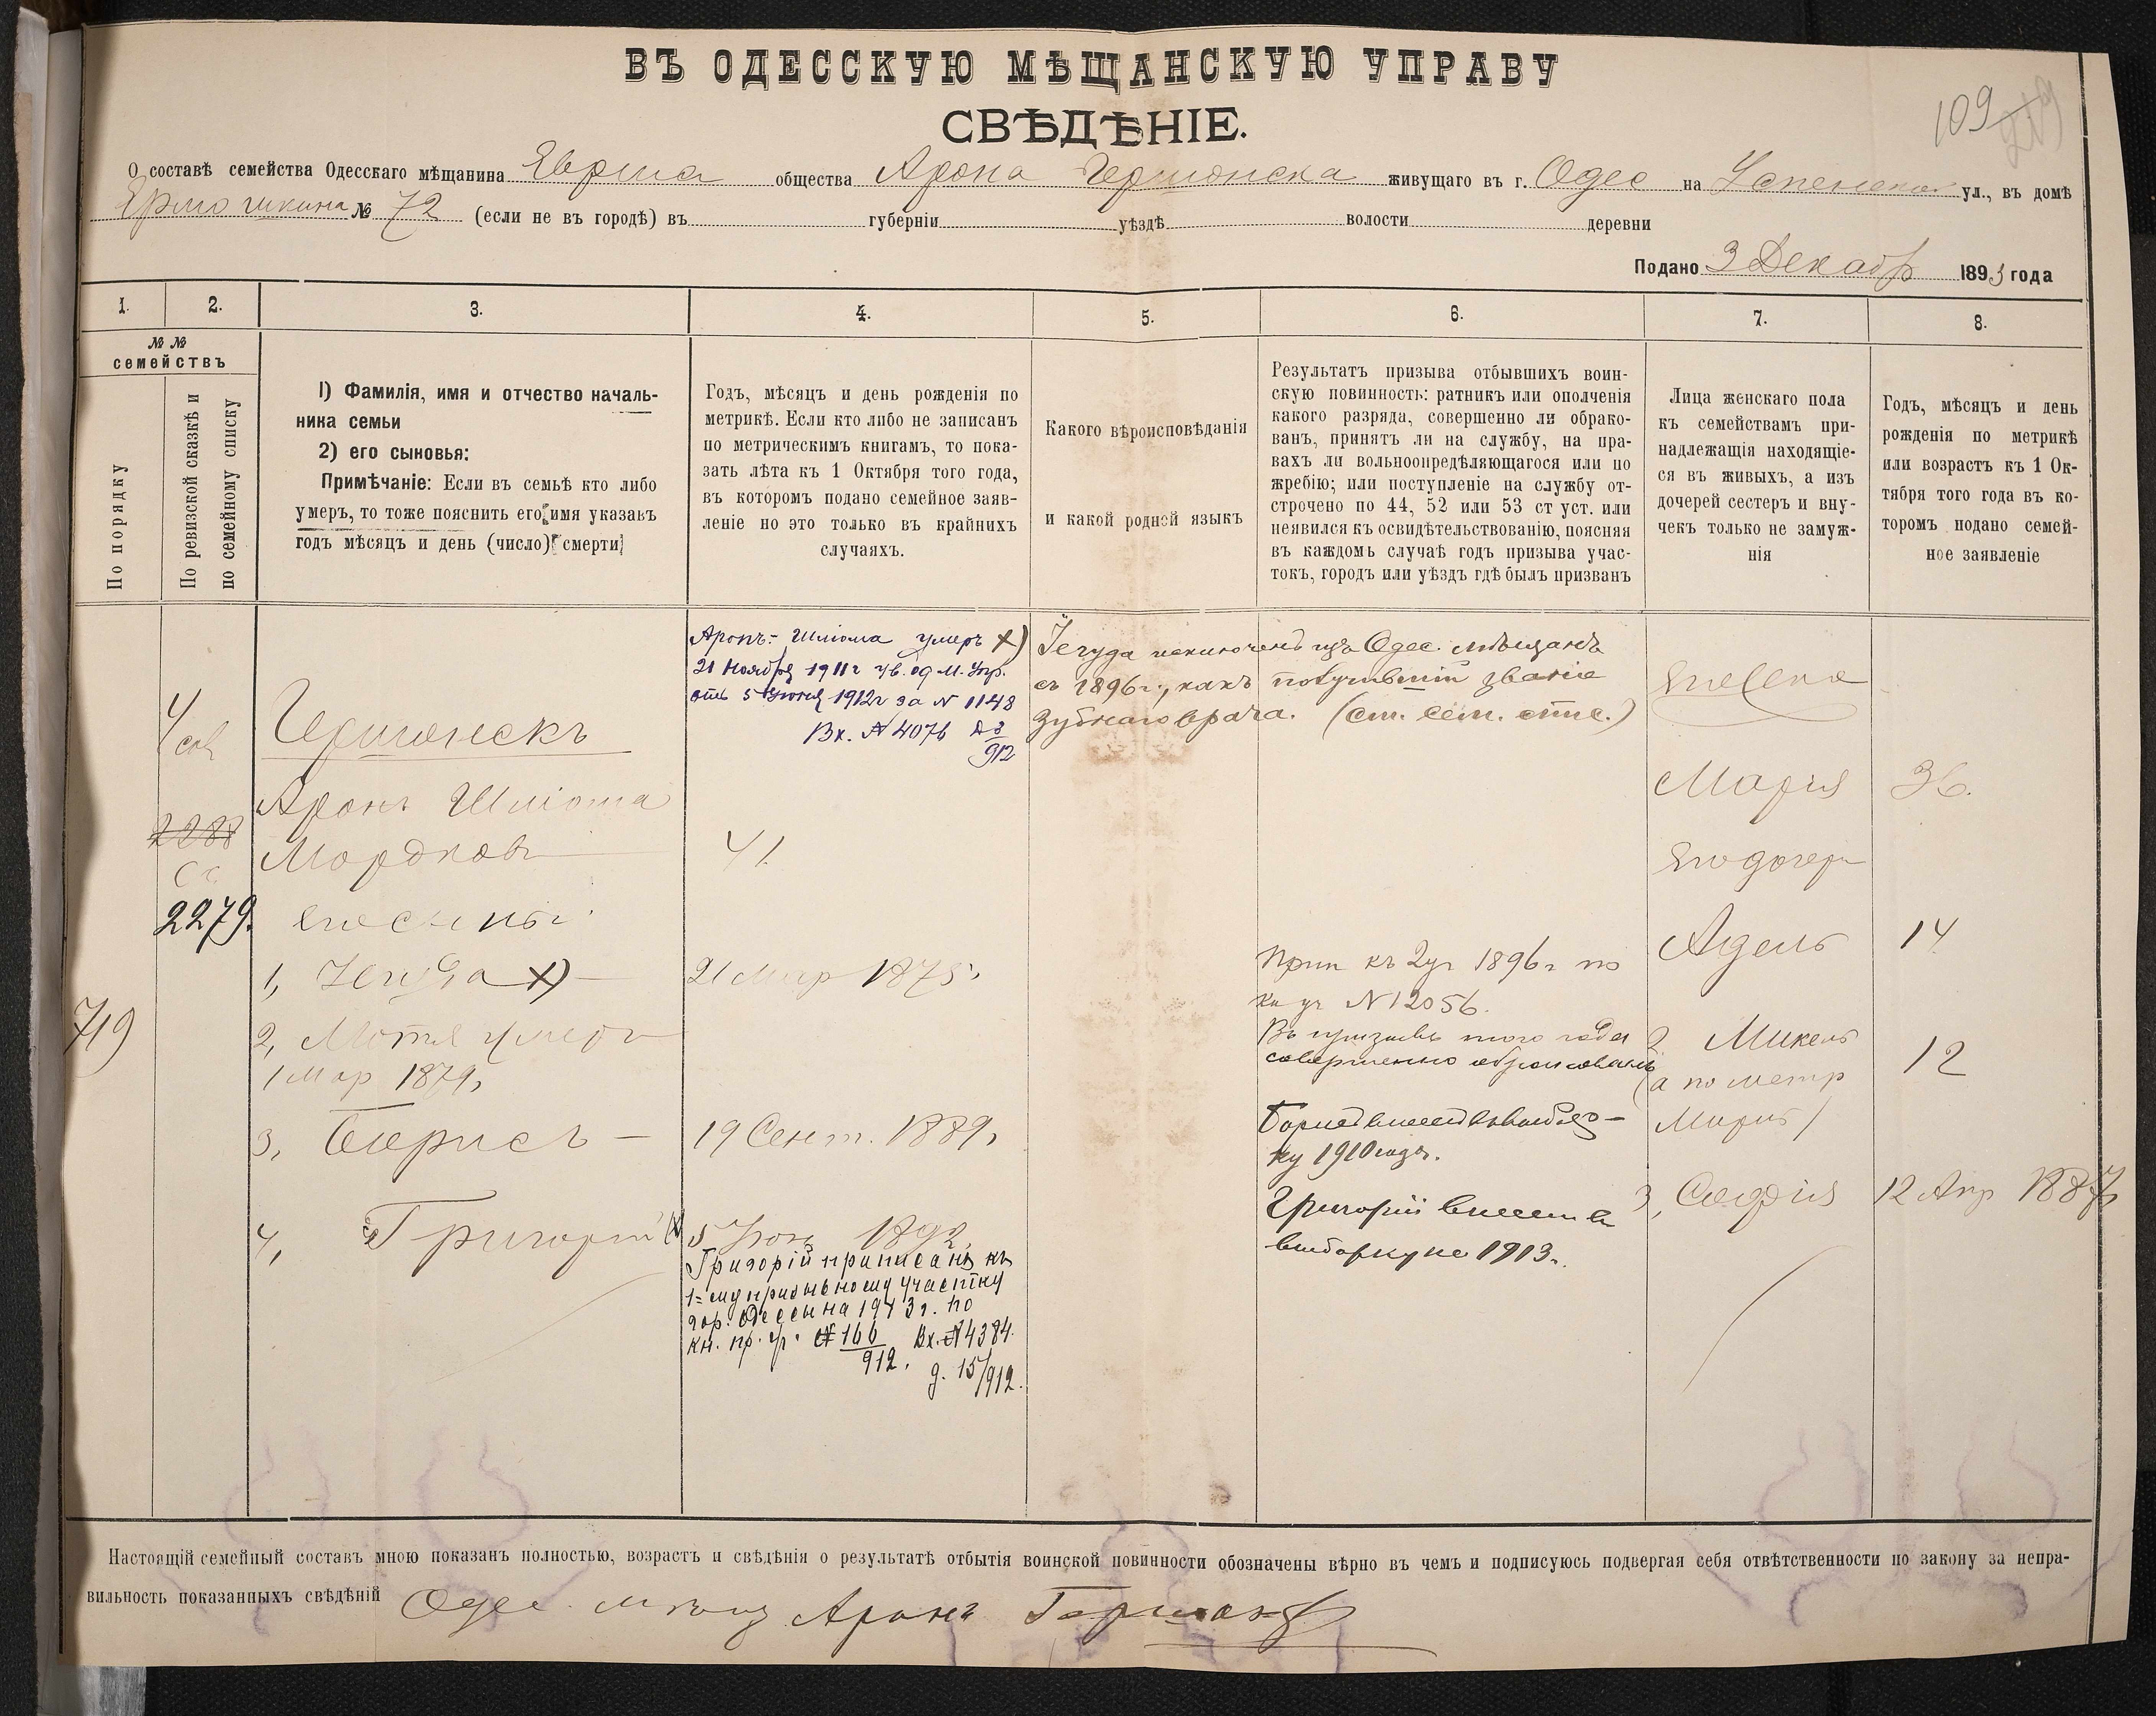 ВЪ ОДЕССКУЮ МѢЩАНСКУЮ УПРАВУ
СВѢДѢНІЕ.
109
О составѣ семейства Одесскаго мѣщанина общества Арона Гершонска живущаго въ г. Одес на Успенской ул., въ домѣ
№ 72 (если не въ городѣ) въ губерніи уѣздѣ волости деревни
Подано 3 Декабр 1893 года
1. 2. 3. 4. 5. 6. 7. 8.
№№
семействъ
По порядку
По ревизской сказкѣ и
по семейному списку
1) Фамилія, имя и отчество началь-
ника семьи
2) его сыновья:
Примѣчаніе: Если въ семьѣ кто либо
умеръ, то тоже пояснить его имя указавъ
годъ мѣсяцъ и день (число) смерти
Годъ, мѣсяцъ и день рожденія по
метрикѣ. Если кто либо не записанъ
по метрическимъ книгамъ, то пока-
зать лѣта къ 1 Октября того года,
въ которомъ подано семейное заяв-
леніе но это только въ крайнихъ
случаяхъ.
Какого вѣроисповѣданія
и какой родной языкъ
Результатъ призыва отбывшихъ воин-
скую повинность: ратникъ или ополченія
какого разряда, совершенно ли обрако-
ванъ, принятъ ли на службу, на пра-
вахъ ли вольноопредѣляющагося или по
жребію; или поступленіе на службу от-
строчено по 44, 52 или 53 ст уст. или
неявился къ освидѣтельствованію, поясняя
въ каждомъ случаѣ годъ призыва учас-
токъ, городъ или уѣздъ гдѣ былъ призванъ
Лица женскаго пола
къ семействамъ при-
надлежащія находящіе-
ся въ живыхъ, а изъ
дочерей сестеръ и вну-
чекъ только не замуж-
нія
Годъ, мѣсяцъ и день
рожденія по метрикѣ
или возрастъ къ 1 Ок-
тября того года въ ко-
торомъ подано семей-
ное заявленіе
719
2288
2279.
Гершонскъ
Аронъ Шліома
Мордков
его сыны
1, Іегуда х)
2, Мотя умеръ
1 Мар 1879,
3, Борисъ
4, Григорій
Аронъ-Шліома умеръ х)
21 Ноября 1911 г ув. Од. М. Упр.
отъ 5 Іюня 1912 г за № 1148
Вх. № 4076
912
41
21 Мар 1875
19 Сент. 1889,
5 Іюн 1892
Григорій приписанъ къ
1=му призывному участку
гор. Одессы на 1913 г. по
кн. пр. уч. № 166 Вх. № 4384.
912. д. 15/912.
Іегуда исключенъ изъ Одес. мѣщанъ
съ 1896 г., какъ получившій званіе
зубного врача. (ст. сем. спис.)
Прип къ 2 уч 1896 г по
кн уч № 12056.
Въ призывъ того года
совершенно обракованъ
Борисъ внесенъ въ выбор-
ку 1910 года.
Григорій внесен въ
выборку на 1913 г.
Его жена
Марія 36.
Его дочери
Адель 14
2 Микель 12
(а по метр
Марія)
3, Софія 12 Апр 1887
Настоящій семейный составъ мною показанъ полностью, возрастъ и свѣдѣнія о результатѣ отбытія воинской повинности обозначены вѣрно въ чемъ и подписуюсь подвергая себя отвѣтственности по закону за непра-
вильность показанныхъ свѣдѣній Одес. мѣщ Аронъ Гершонск